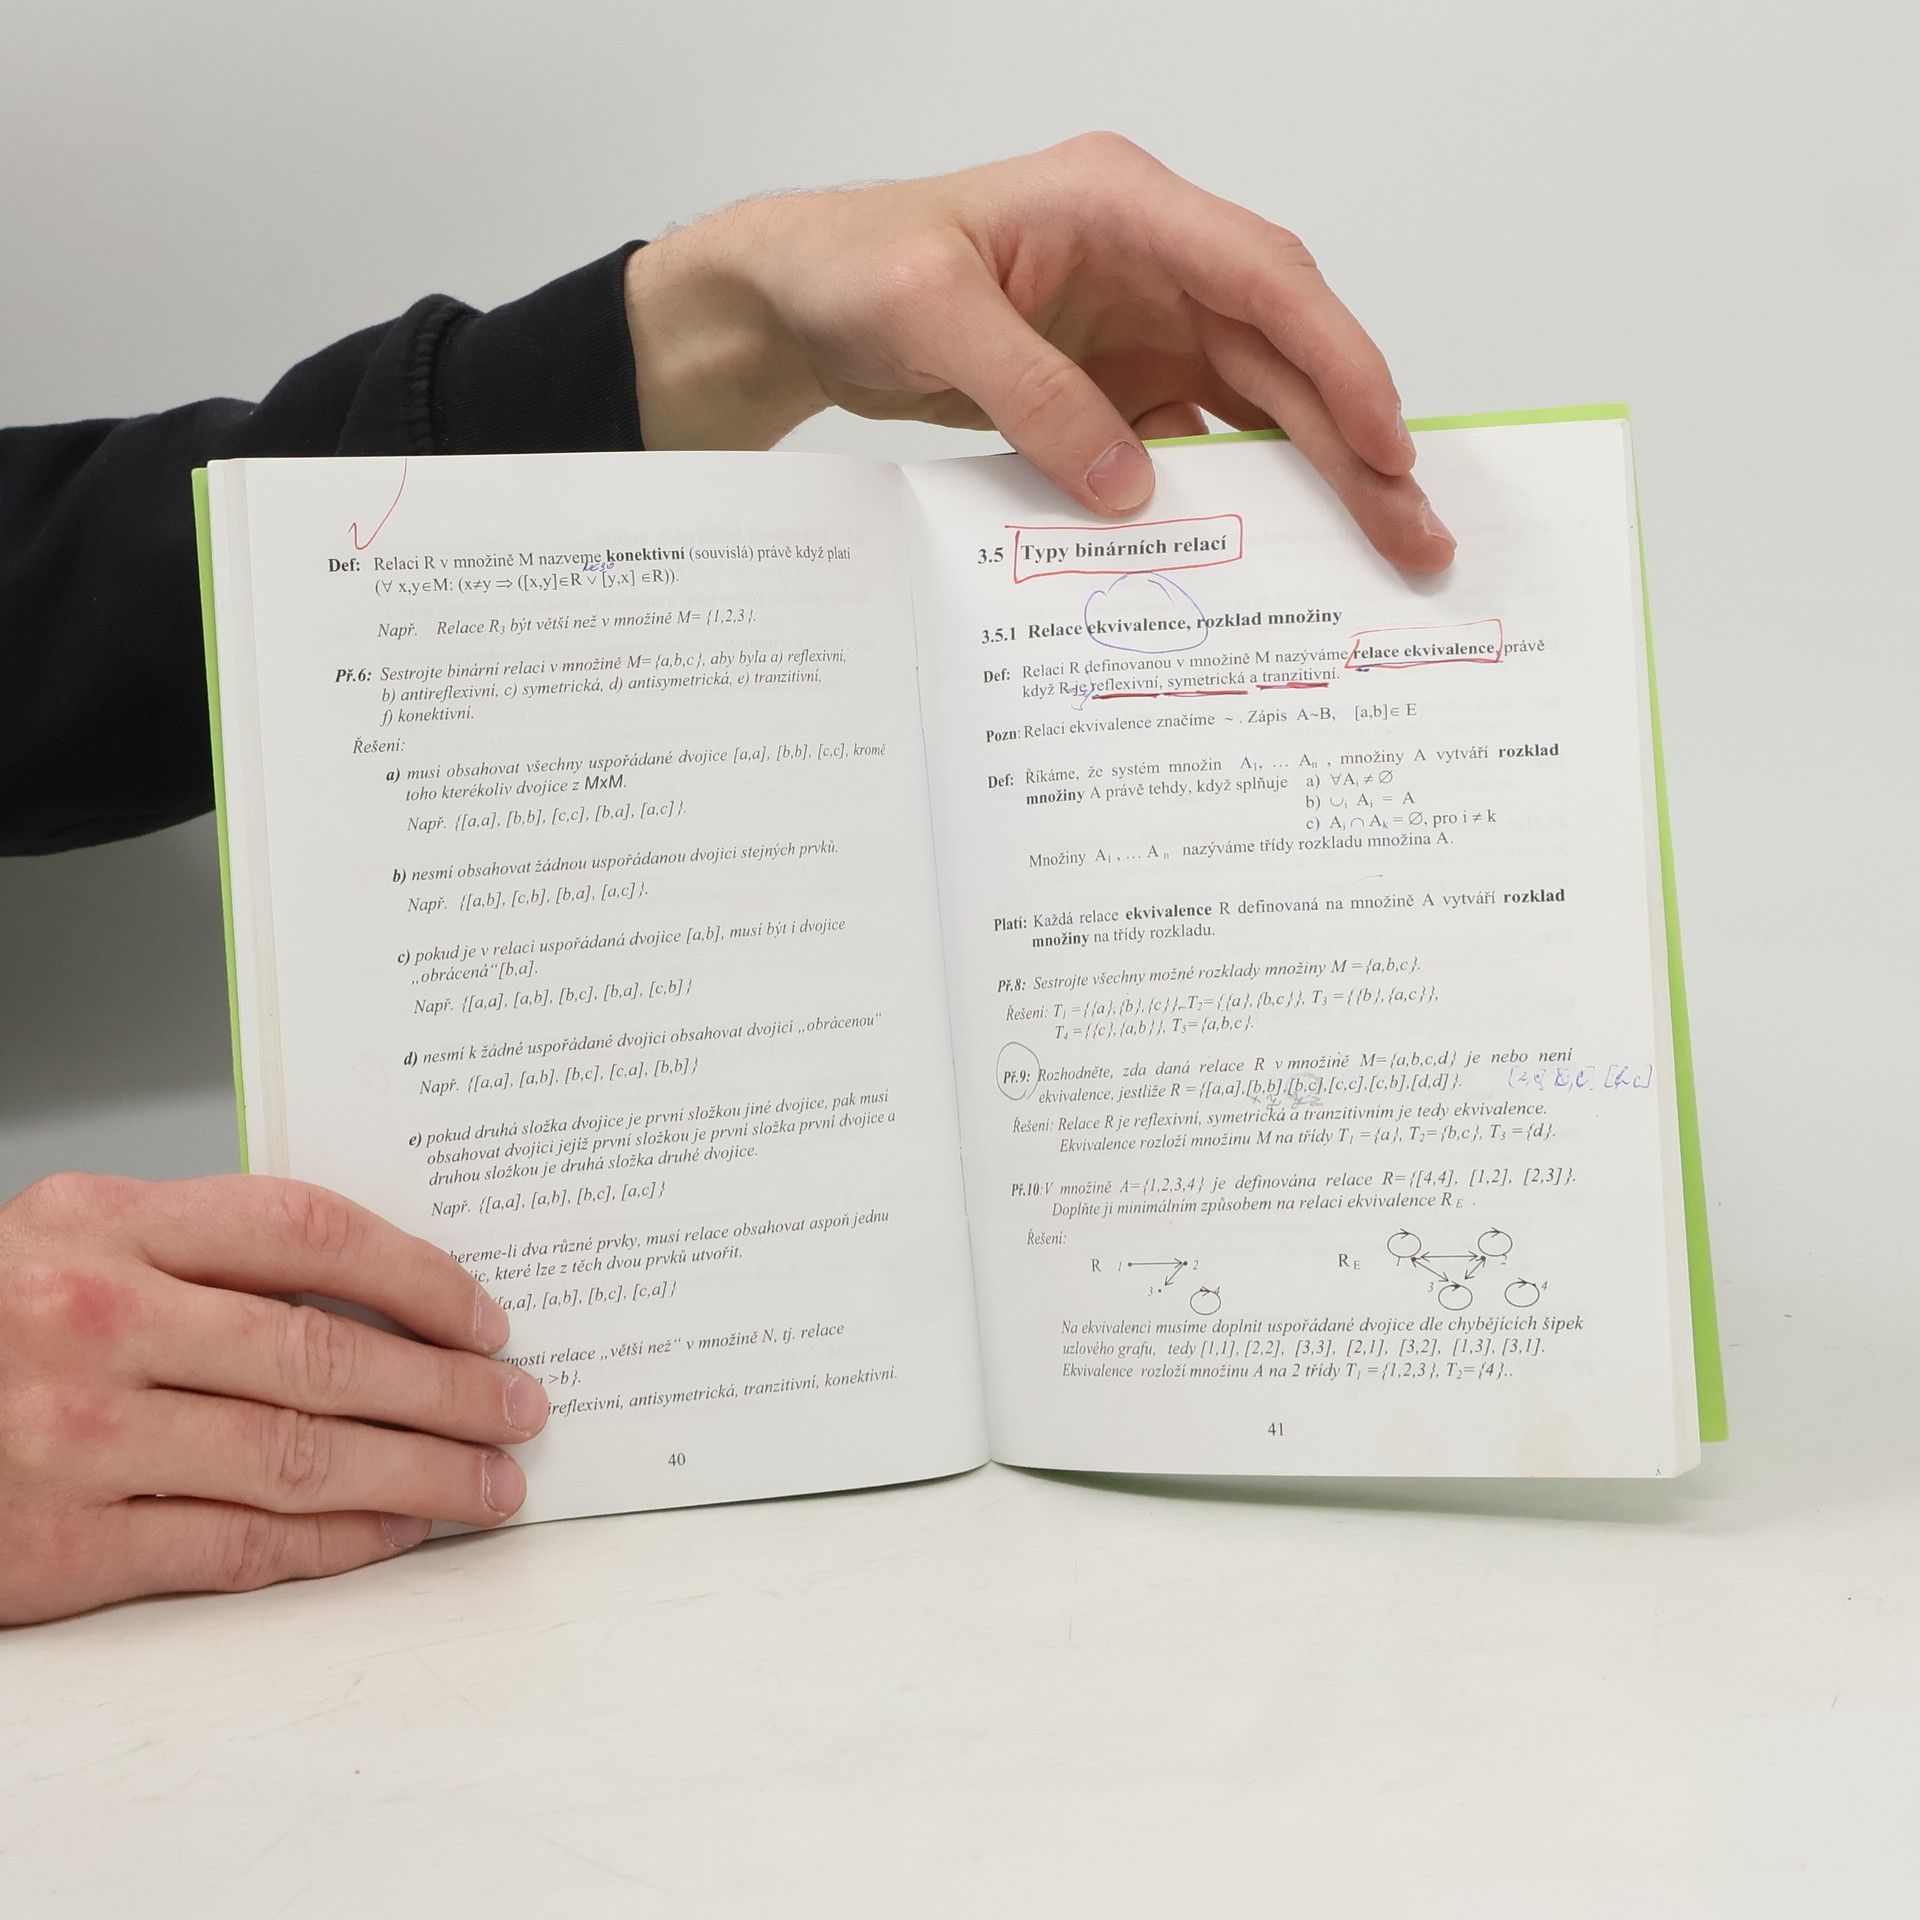 Def: Relaci R v množině M nazveme konektivní (souvislá) právě když platí
nebo
(∀ x,y∈M: (x≠y ⇒ ([x,y]∈R ∨ [y,x] ∈R)).
Např. Relace R₃ být větší než v množině M= {1,2,3}.
Př.6: Sestrojte binární relaci v množině M={a,b,c}, aby byla a) reflexivní,
b) antireflexivní, c) symetrická, d) antisymetrická, e) tranzitivní,
f) konektivní.
Řešení:
a) musí obsahovat všechny uspořádané dvojice [a,a], [b,b], [c,c], kromě
toho kterékoliv dvojice z MxM.
Např. {[a,a], [b,b], [c,c], [b,a], [a,c]}.
b) nesmí obsahovat žádnou uspořádanou dvojici stejných prvků.
Např. {[a,b], [c,b], [b,a], [a,c]}.
c) pokud je v relaci uspořádaná dvojice [a,b], musí být i dvojice
„obrácená“[b,a].
Např. {[a,a], [a,b], [b,c], [b,a], [c,b]}
d) nesmí k žádné uspořádané dvojici obsahovat dvojici „obrácenou“
Např. {[a,a], [a,b], [b,c], [c,a], [b,b]}
e) pokud druhá složka dvojice je první složkou jiné dvojice, pak musí
obsahovat dvojici jejíž první složkou je první složka první dvojice a
druhou složkou je druhá složka druhé dvojice.
Např. {[a,a], [a,b], [b,c], [a,c]}
bereme-li dva různé prvky, musí relace obsahovat aspoň jednu
, které lze z těch dvou prvků utvořit.
[a,a], [a,b], [b,c], [c,a]}
relace „větší než“ v množině N, tj. relace
>b}.
antisymetrická, tranzitivní, konektivní.
40
3.5 Typy binárních relací
3.5.1 Relace ekvivalence, rozklad množiny
Def: Relaci R definovanou v množině M nazýváme relace ekvivalence, právě
když R je reflexivní, symetrická a tranzitivní.
Pozn: Relaci ekvivalence značíme ~ . Zápis A~B, [a,b]∈ E
Def: Říkáme, že systém množin A₁, … Aₙ , množiny A vytváří rozklad
množiny A právě tehdy, když splňuje a) ∀Aᵢ ≠ ∅
b) ∪ᵢ Aᵢ = A
c) Aᵢ ∩ Aₖ = ∅, pro i ≠ k
Množiny A₁ , … A ₙ nazýváme třídy rozkladu množina A.
Platí: Každá relace ekvivalence R definovaná na množině A vytváří rozklad
množiny na třídy rozkladu.
Př.8: Sestrojte všechny možné rozklady množiny M ={a,b,c}.
Řešení: T₁ ={{a},{b},{c}}, T₂={{a},{b,c}}, T₃ ={{b},{a,c}},
T₄ ={{c},{a,b}}, T₅={a,b,c}.
Př.9: Rozhodněte, zda daná relace R v množině M={a,b,c,d} je nebo není
ekvivalence, jestliže R ={[a,a],[b,b],[b,c],[c,c],[c,b],[d,d]}.
Řešení: Relace R je reflexivní, symetrická a tranzitivním je tedy ekvivalence.
Ekvivalence rozloží množinu M na třídy T₁ ={a}, T₂={b,c}, T₃ ={d}.
Př.10: V množině A={1,2,3,4} je definována relace R={[4,4], [1,2], [2,3]}.
Doplňte ji minimálním způsobem na relaci ekvivalence R E .
Řešení:
R 1 2 3 4 R E 1 2 3 4
Na ekvivalenci musíme doplnit uspořádané dvojice dle chybějících šipek
uzlového grafu, tedy [1,1], [2,2], [3,3], [2,1], [3,2], [1,3], [3,1].
Ekvivalence rozloží množinu A na 2 třídy T₁ ={1,2,3}, T₂={4}..
41